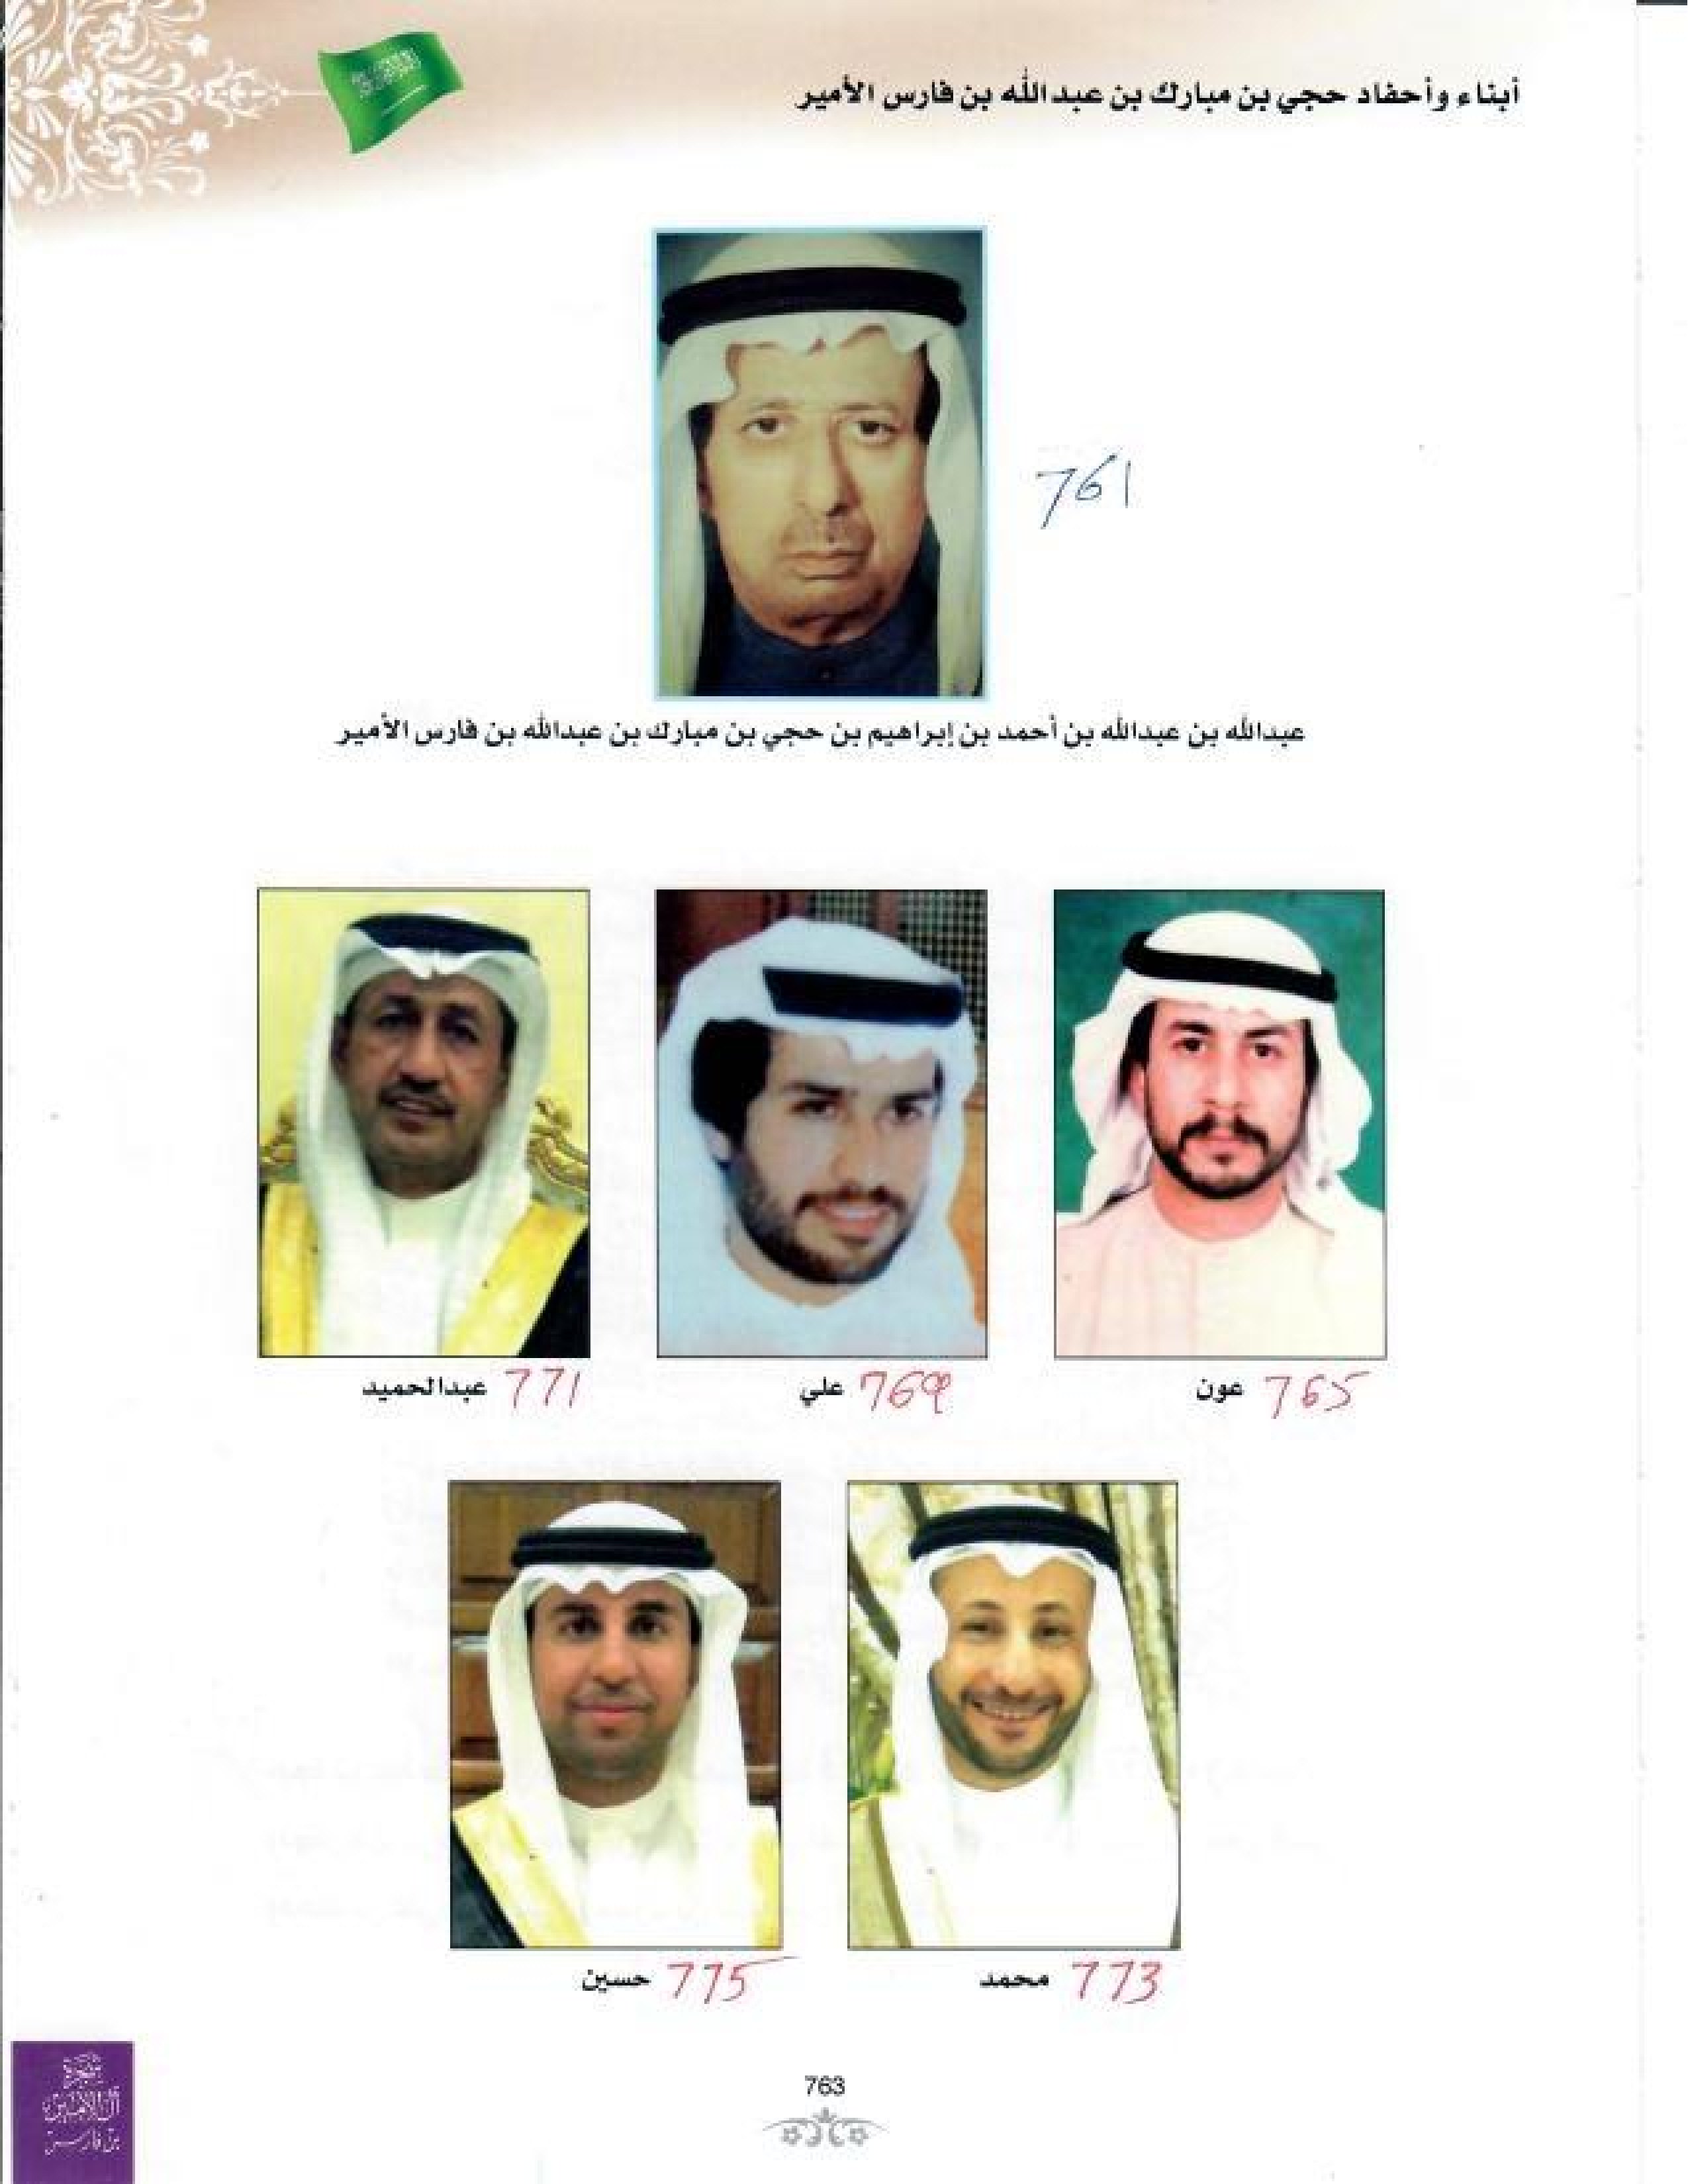 أبناء وأحفاد حجي بن مبارك بن عبد الله بن فارس الأمير
761
عبدالله بن عبدالله بن أحمد بن إبراهيم بن حجي بن مبارك بن عبدالله بن فارس الأمير
عون 765
علي 769
عبدالحميد 771
محمد 773
حسين 775
شجرة
آل الأمير
بن فارس
763